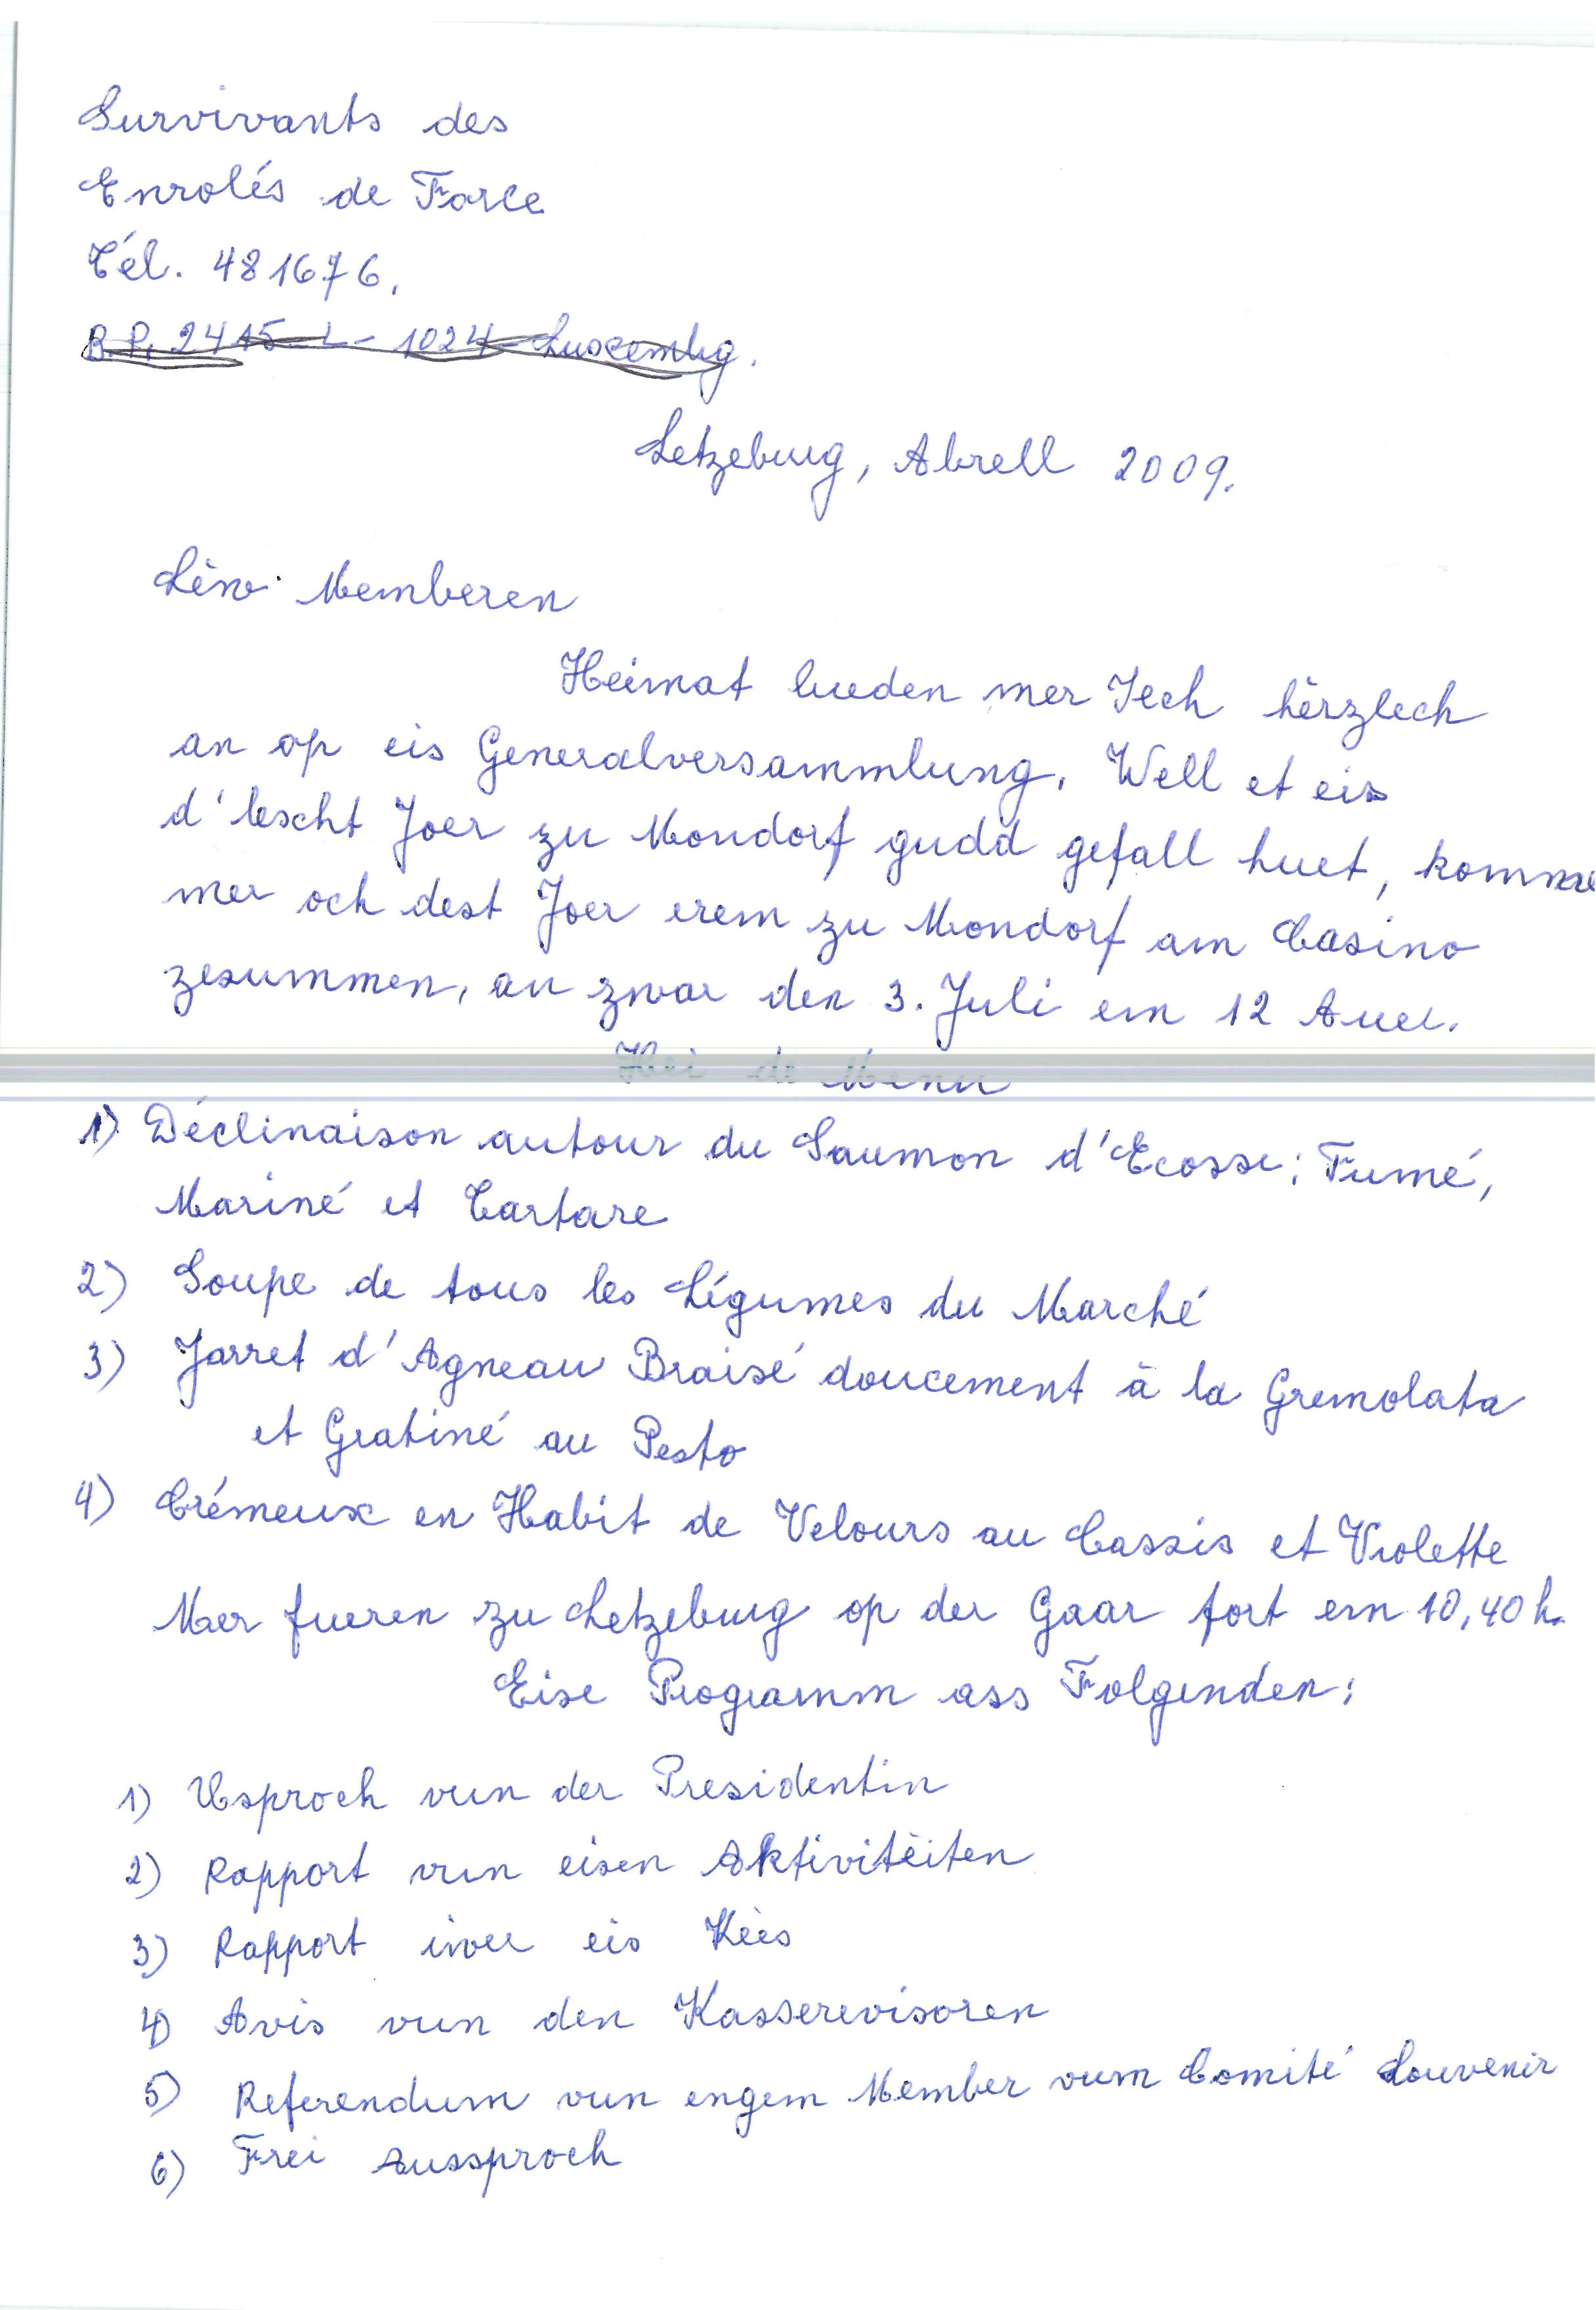 Survivants des
Enrolés de Force
Tél. 481676.
B.P. 2415-L-1024-Luxembg.
Letzeburg, Abrell 2009.
Lèw Memberen
Heimat lueden mer Iech hèrzlech
an op eis Generalversammlung. Well et eis
d'lescht Joer zu Mondorf gudd gefall huet, komme
mer och dest Joer erem zu Mondorf am Casino
zesummen, an zwar den 3. Juli em 12 Auer.
Hei de Menu
1) Déclinaison autour du Saumon d'Ecosse: Fumé,
Mariné et Tartare
2) Soupe de tous les Légumes du Marché
3) Jarret d'Agneau Braisé doucement à la Gremolata
et Gratiné au Pesto
4) Crémeux en Habit de Velours au Cassis et Violette
Mer fueren zu Letzeburg op der Gaar fort em 10,40 h.
Eise Programm ass Folgenden:
1) Usproch vun der Presidentin
2) Rapport vun eisen Aktivitèiten
3) Rapport iwer eis Kèes
4) Avis vun den Kasserevisoren
5) Referendum vun engem Member vum Comité Souvenir
6) Frei Aussproch